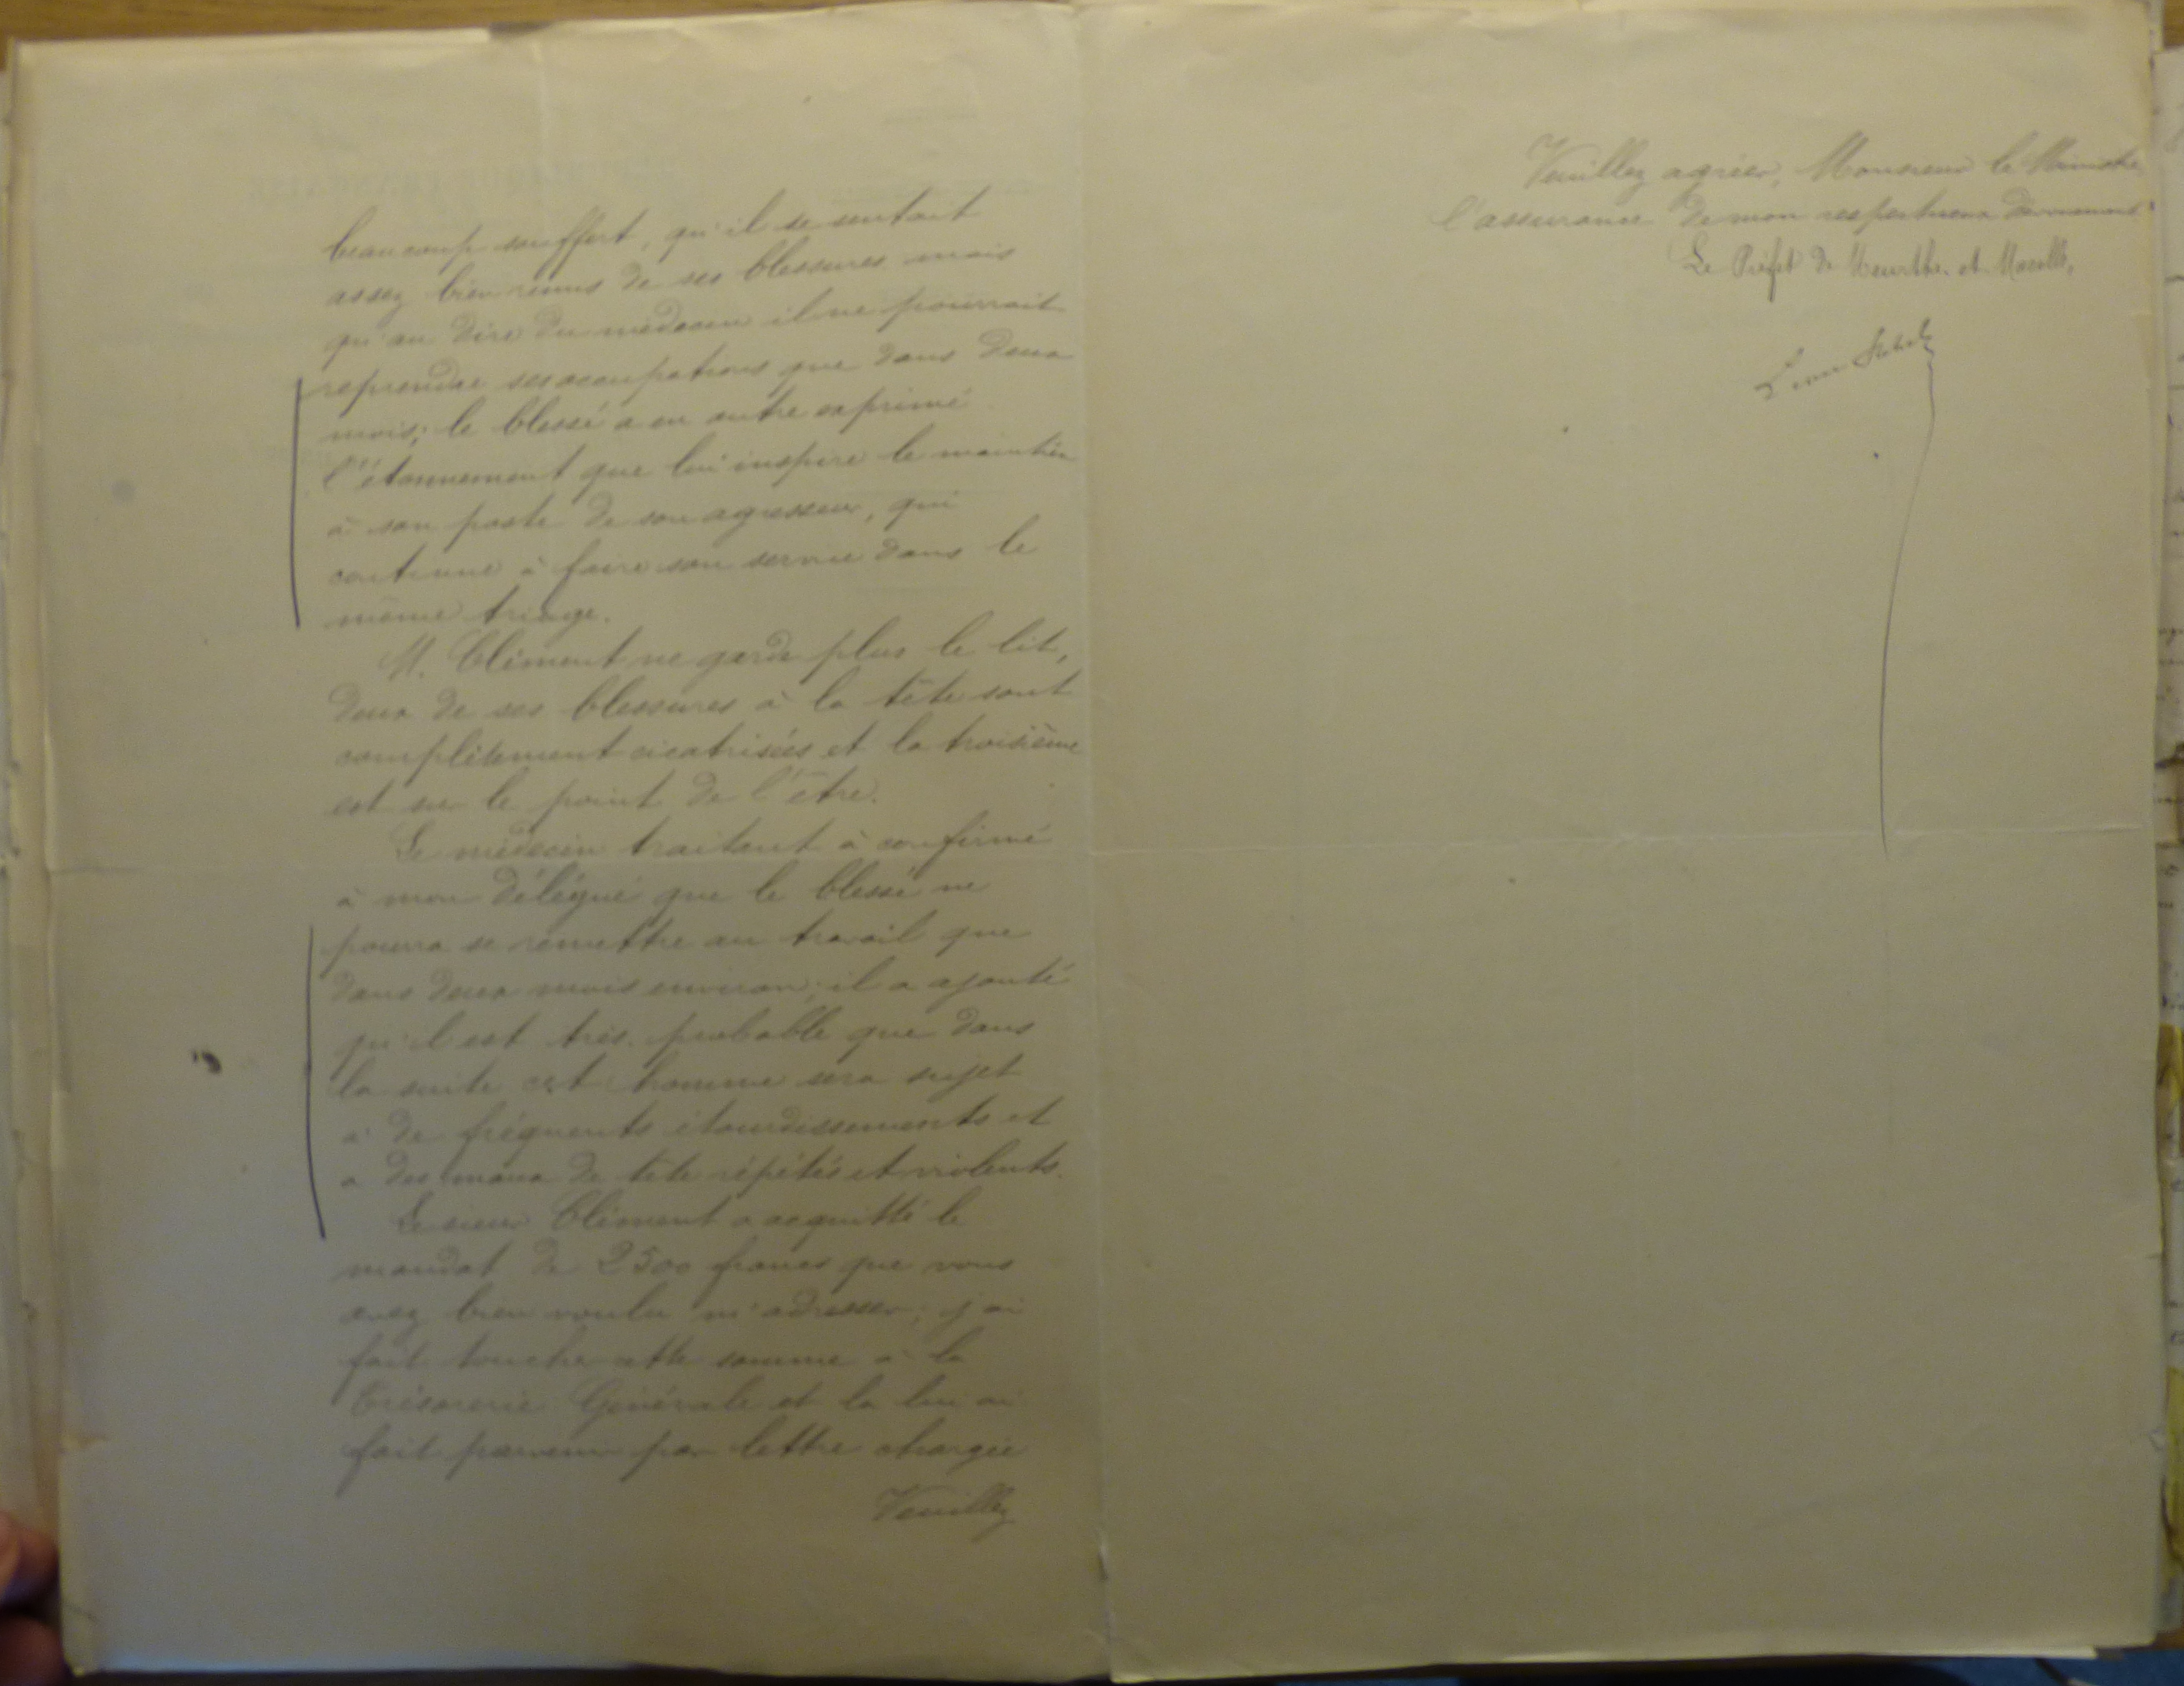 beaucoup souffert, qu'il se sentait
assez bien remis de ses blessures mais
qu'au dire du médecin il ne pourrait
reprendre ses occupations que dans deux
mois; le blessé a en outre exprimé
l'étonnement que lui inspire le maintien
à son poste de son agresseur, qui
continue à faire son service dans le
même triage.
M. Clément ne garde plus le lit,
deux de ses blessures à la tête sont
complètement cicatrisées et la troisième
est sur le point de l'être.
Le médecin traitant à confirmé
à mon délégué que le blessé ne
pourra se remettre au travail que
dans deux mois environ; il a ajouté
qu'il est très probable que dans
la suite cet homme sera sujet
à de fréquents étourdissements et
a des maux de tête répétés et violents.
Le sieur Clément a acquitté le
mandat de 2500 francs que vous
avez bien voulu m'adresser; j'ai
fait toucher cette somme à la
Trésorerie Générale et la lui ai
fait parvenir par lettre chargée
Veuillez
Veuillez agréer, Monsieur le Ministre
l'assurance de mon respectueux dévouement
Le Préfet de Meurthe et Moselle,